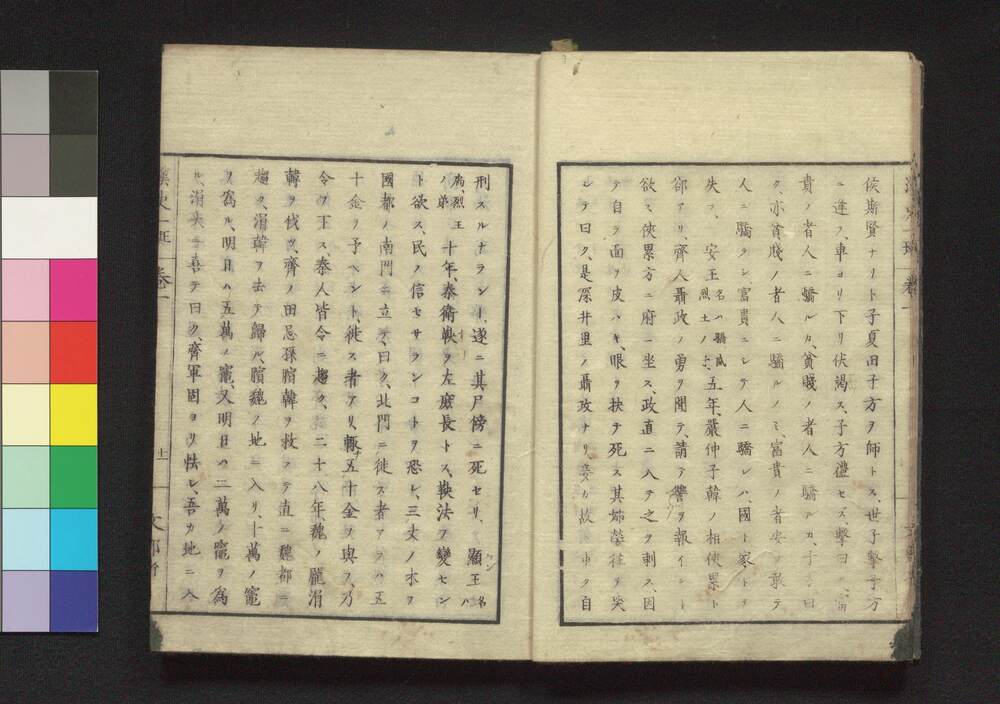 侯斯賢ナリト子夏田子方ヲ師トス、世子撃子方
ニ逢フ、車ヨリ下リ伏謁ス、子方禮セズ、撃曰
貴ノ者人ニ驕ルカ、貧賤ノ者人ニ驕ルカ、子
ク、亦貧賤ノ者人ニ驕ルノミ、富貴ノ者安ソ敢テ
人ニ驕ラン富貴ニシテ人ニ驕レハ、國ト家トヲ
失フ、安王名ハ驕威烈王ノ子、五年、嚴仲子韓ノ相俠累ト
郤アリ齊人聶政ノ勇ヲ聞テ、請テ讐ヲ報イント
欲ス、俠累方ニ府ニ坐ス、政直ニ入テ之ヲ刺ス、因
テ自ラ面ヲ皮ハキ、眼ヲ抉テ死ス其姉嫈往ヲ哭
シテ曰ク、是深井里ノ聶政ナリ、妾カ故ニ重ク自
刑スルナラント、遂ニ其尸傍ニ死セリ、顯王名ハ
烈王ノ弟十年、秦衛鞅ヲ左庶長トス、鞅法ヲ變セン
ト欲ス、民ノ信セサランコトヲ恐レ、三丈ノ木ヲ
國都ノ南門ニ立テ、曰ク、北門ニ徙ス者アラハ五
十金ヲ予ヘント、徙ス者アリ、輙五十金ヲ與フ、乃
令ヲ下ス秦人皆令ニ趨ク、二十八年、魏ノ龐涓
韓ヲ伐ツ、齊ノ田忌孫臏韓ヲ救フテ直ニ魏都ニ
趨ク、涓韓ヲ去テ歸ル、臏魏ノ地ニ入リ、十萬ノ竈
ヲ為ル、明日ハ五萬ノ竈、又明日ハ二萬ノ竈ヲ為
ル、涓大ニ喜テ曰ク、齊軍固ヨリ怯レ、吾カ地ニ入
漢史一班 卷一 十一 文部省